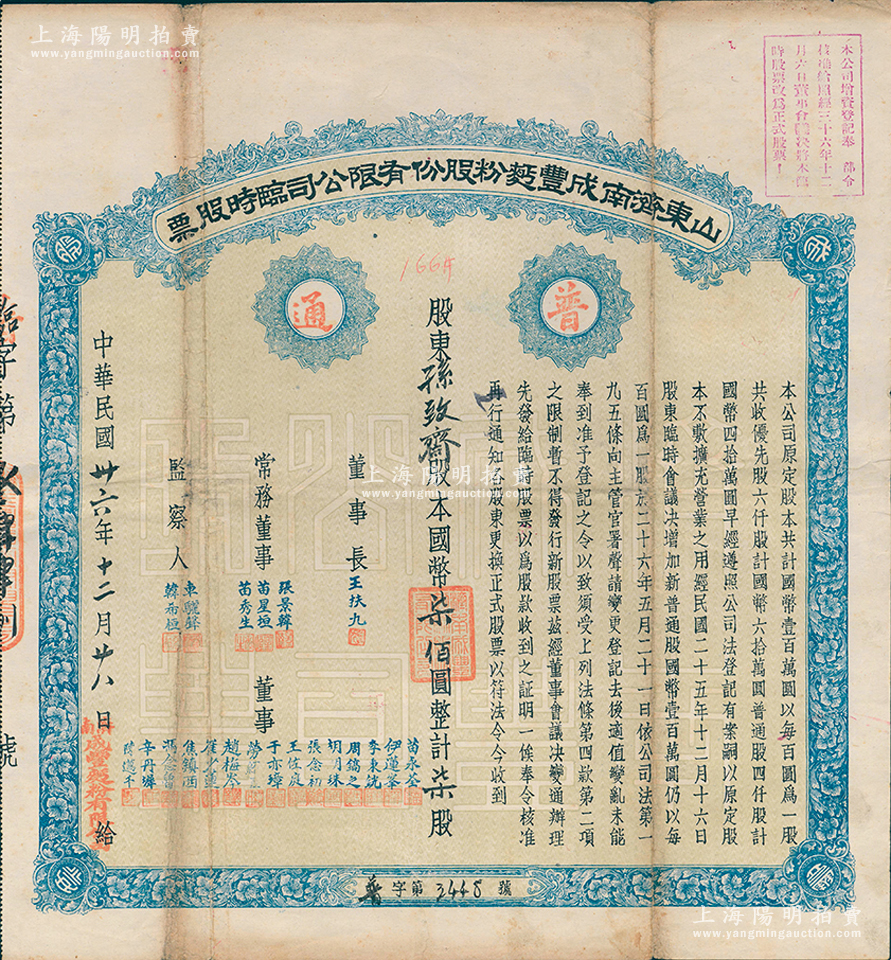 上海陽明拍賣
www.yangmingauction.com
本公司增資登記奉 部令
核准給照經三十六年十二
月六日董事會議決將本臨
時股票改為正式股票！
山東濟南成豐麵粉股份有限公司臨時股票
普
通
1664
本公司原定股本共計國幣壹百萬圓以每百圓爲一股
共收優先股六仟股計國幣六拾萬圓普通股四仟股計
國幣四拾萬圓早經遵照公司法登記有案嗣以原定股
本不敷擴充營業之用經民國二十五年十二月十六日
股東臨時會議决增加新普通股國幣壹百萬圓仍以每
百圓爲一股於二十六年五月二十一日依公司法第一
九五條向主管官署聲請變更登記去後適值變亂未能
奉到准予登記之令以致須受上列法條第四款第二項
之限制暫不得發行新股票茲經董事會議决變通辦理
先發給臨時股票以爲股款收到之証明一俟奉令核准
再行通知各股東更換正式股票以符法令今收到
股東孫致齋股本國幣柒佰圓整計柒股
上海陽明拍賣
www.yangmingauction.com
董事長 王扶九
常務董事
張景韓
苗星垣
苗秀生
董事
苗永荃
伊蓮峯
李東銳
周鏡之
張念初
王佐庭
于亦璋
趙梅岑
焦鏡西
馮念魯
辛丹墀
監察人
韓希桓
中華民國卅六年十二月廿八日給
濟南成豐麵粉有限公司
臨字第
號
普字第3448號
上海陽明拍賣
www.yangmingauction.com